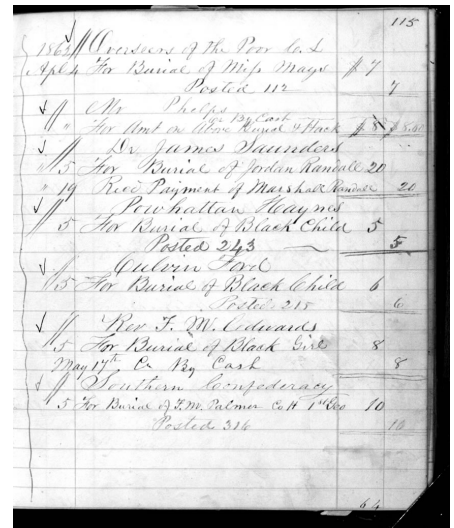 115
1863 // Overseers of the Poor
Apl 4 For Burial of Miss Mays // 7
Posted 112 7
// Mr Phelps
Cr By Cash
" For Amt on Above Burial & Hack $ 8
// Dr James Saunders
" 5 For Burial of Jordan Randall 20
" 19 Recd Payment of Marshall Randall 20
// Powhattan Haynes
5 For Burial of Black Child 5
Posted 243 5
// Culvin Ford
" 5 For Burial of Black Child 6
Posted 215 6
// Rev F. M. Edwards
5 For Burial of Black Girl 8
May 17th Cr By Cash 8
// Southern Confederacy
5 For Burial of F. M. Palmer Co H 1st 10
Posted 316 10
64